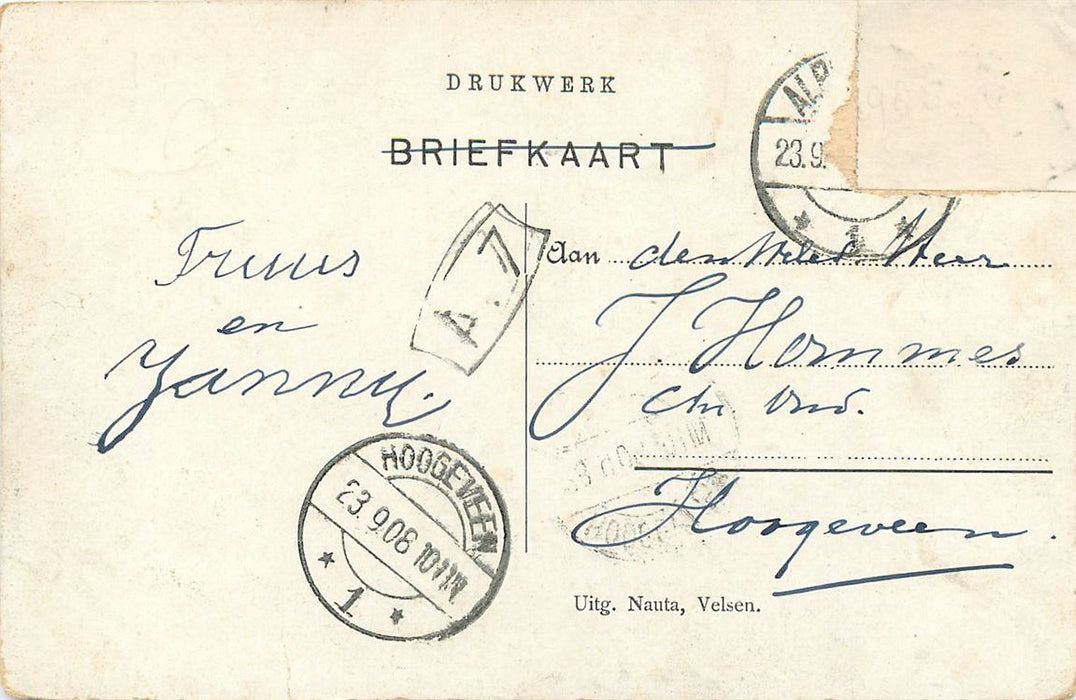 DRUKWERK
BRIEFKAART
ALP
23.9.
1
Truus
en
Janny.
A 7
Aan den Weled. Heer
J. Hommes
Chr. Ond.
Hoogeveen.
HOOGEVEEN
23.9.08 10-11V
1
Uitg. Nauta, Velsen.